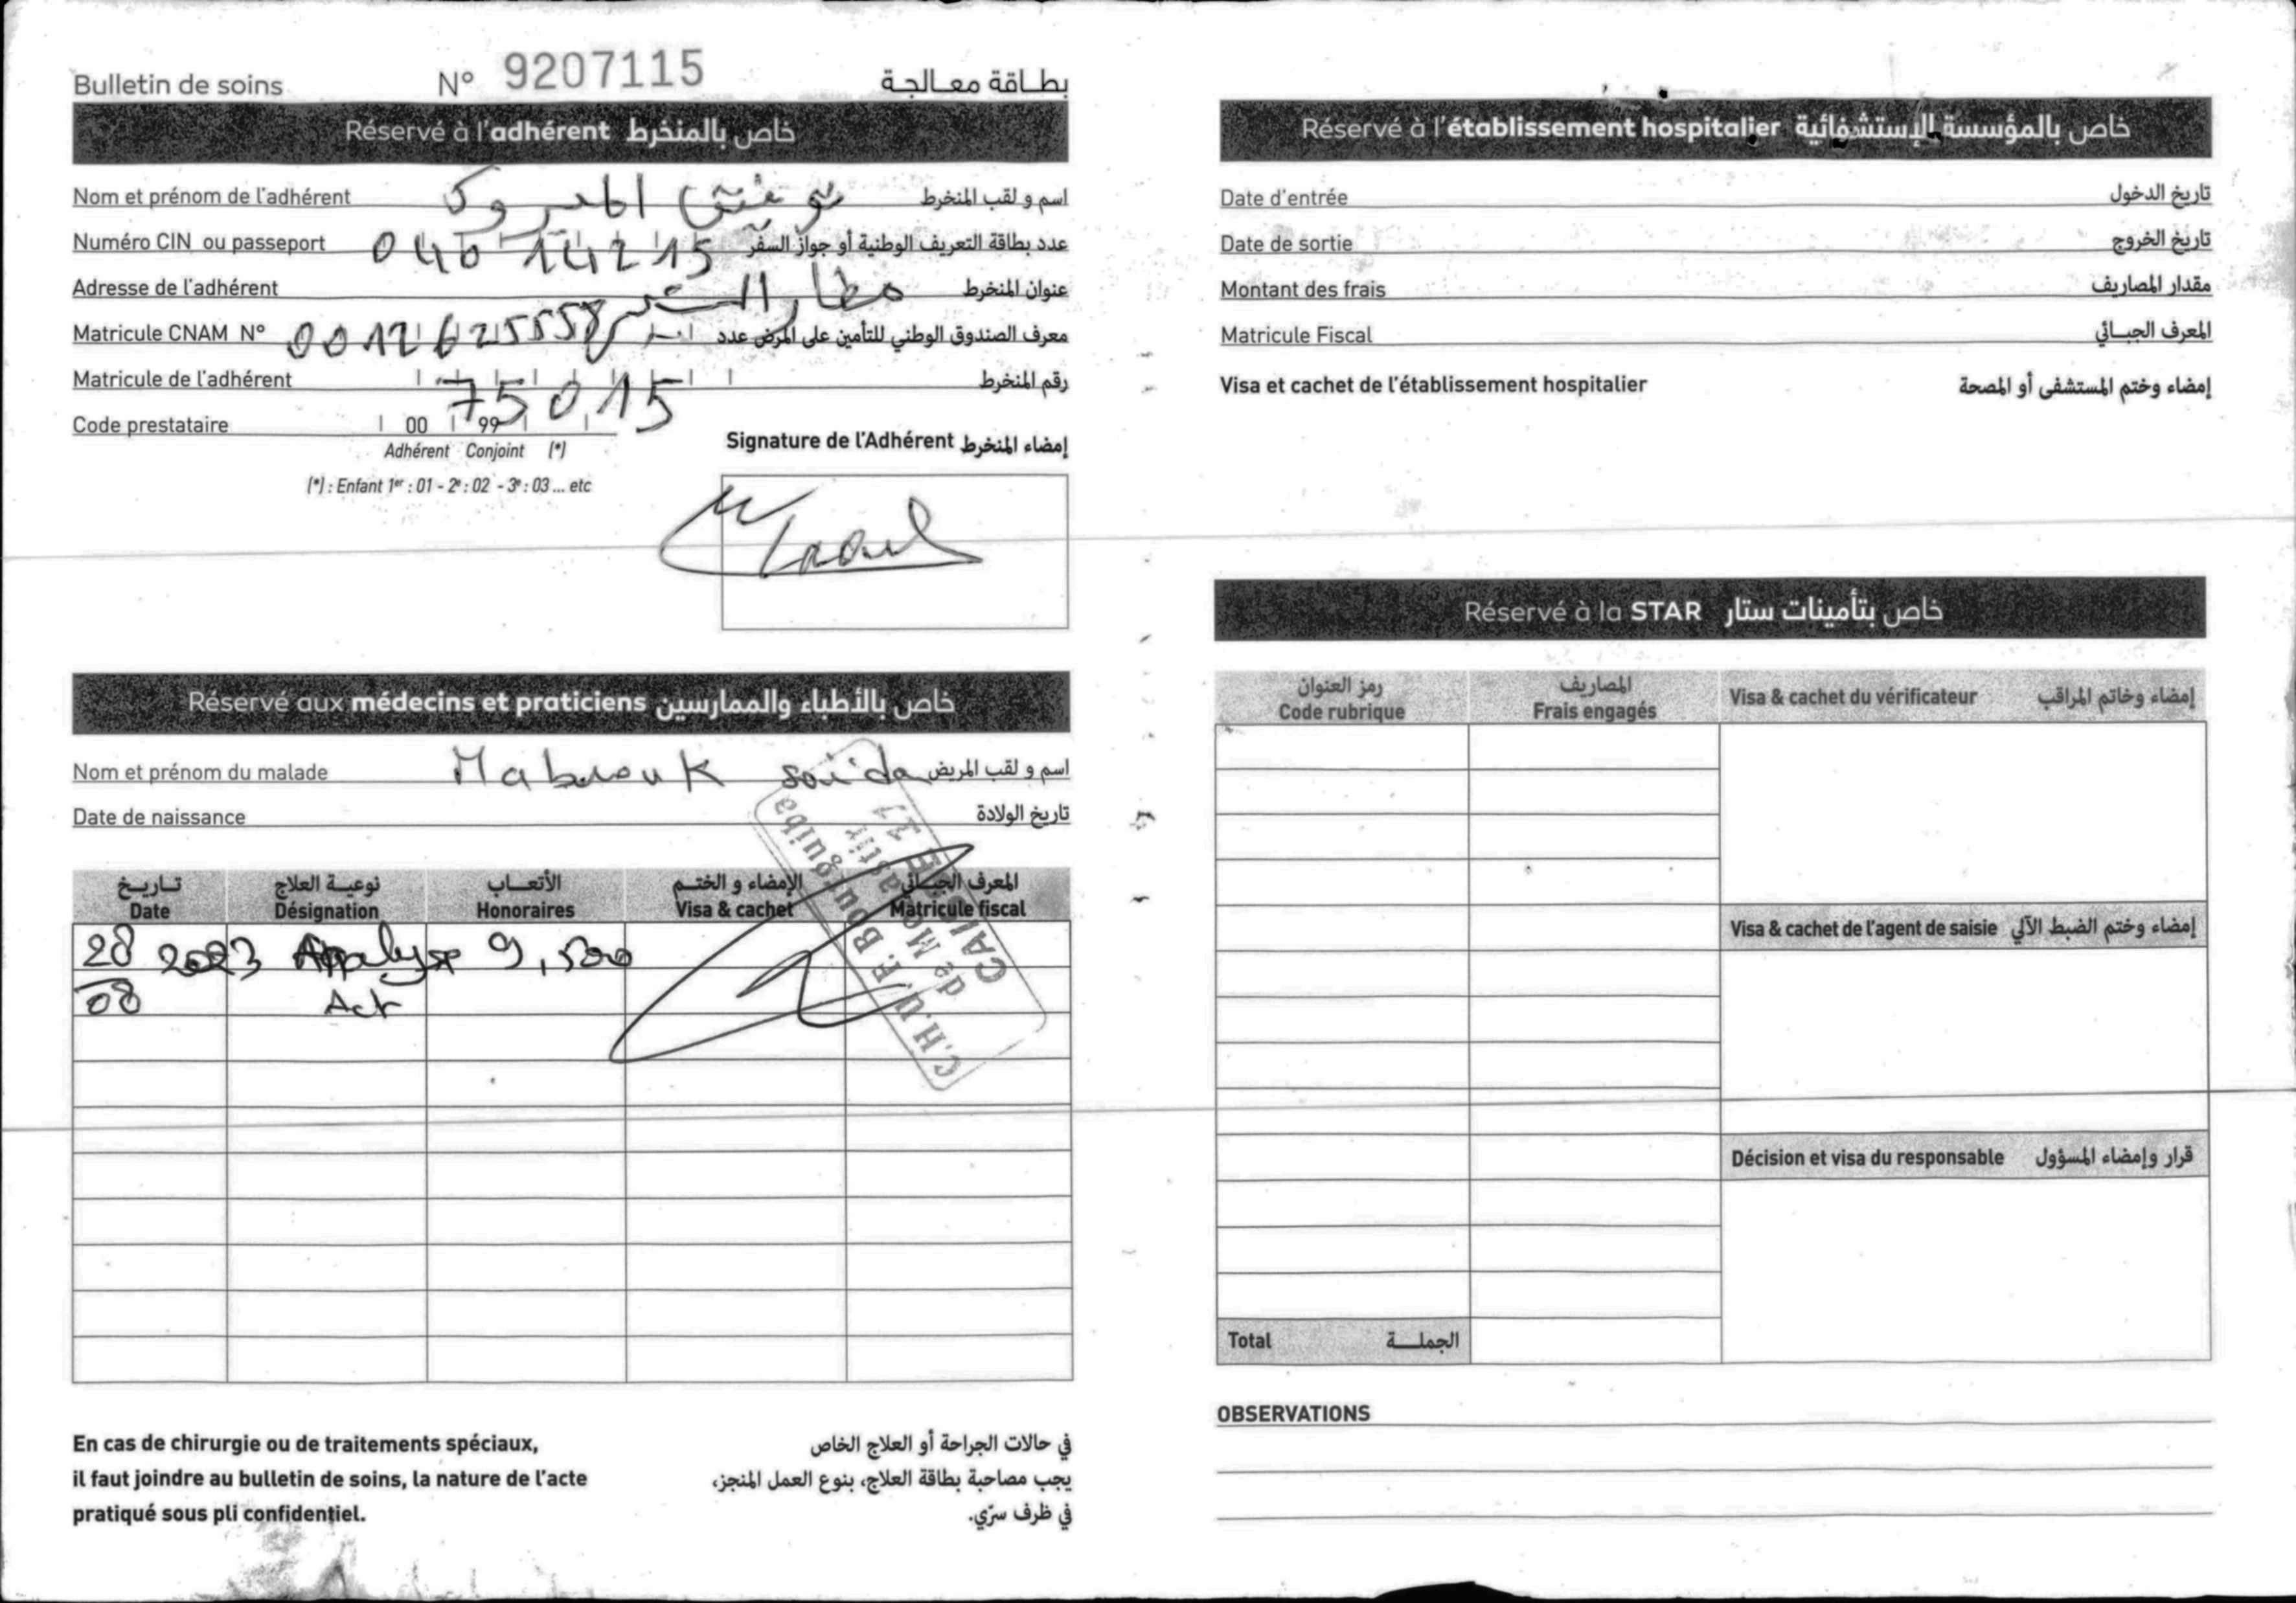 Bulletin de soins N° 9207115 بطاقة معالجة
Réservé à l'adhérent خاص بالمنخرط
Nom et prénom de l'adhérent توفيق المبروك اسم و لقب المنخرط
Numéro CIN ou passeport 04014215 عدد بطاقة التعريف الوطنية أو جواز السفر
Adresse de l'adhérent مطار عنوان المنخرط
Matricule CNAM N° معرف الصندوق الوطني للتأمين على المرض عدد
Matricule de l'adhérent 75015 رقم المنخرط
Code prestataire 00 99
Adhérent Conjoint (*)
(*) : Enfant 1er : 01 - 2e : 02 - 3e : 03 ... etc
Signature de l'Adhérent إمضاء المنخرط
Réservé aux médecins et praticiens خاص بالأطباء والممارسين
Nom et prénom du malade Mabrouk saida اسم و لقب المريض
Date de naissance تاريخ الولادة
تاريخ نوعية العلاج الأتعاب الإمضاء و الختم المعرف الجبائي
Date Désignation Honoraires Visa & cachet Matricule fiscal
28 2023 Analyse 9,500
08 Act
C.H.U. F. Bourguiba
de Monastir
CAISSE
En cas de chirurgie ou de traitements spéciaux,
il faut joindre au bulletin de soins, la nature de l'acte
pratiqué sous pli confidentiel.
في حالات الجراحة أو العلاج الخاص
يجب مصاحبة بطاقة العلاج، بنوع العمل المنجز،
في ظرف سرّي.
Réservé à l'établissement hospitalier خاص بالمؤسسة الإستشفائية
Date d'entrée تاريخ الدخول
Date de sortie تاريخ الخروج
Montant des frais مقدار المصاريف
Matricule Fiscal المعرف الجبائي
Visa et cachet de l'établissement hospitalier إمضاء وختم المستشفى أو المصحة
Réservé à la STAR خاص بتأمينات ستار
رمز العنوان المصاريف
Code rubrique Frais engagés Visa & cachet du vérificateur إمضاء وخاتم المراقب
Visa & cachet de l'agent de saisie إمضاء وختم الضبط الآلي
Décision et visa du responsable قرار وإمضاء المسؤول
Total الجملة
OBSERVATIONS